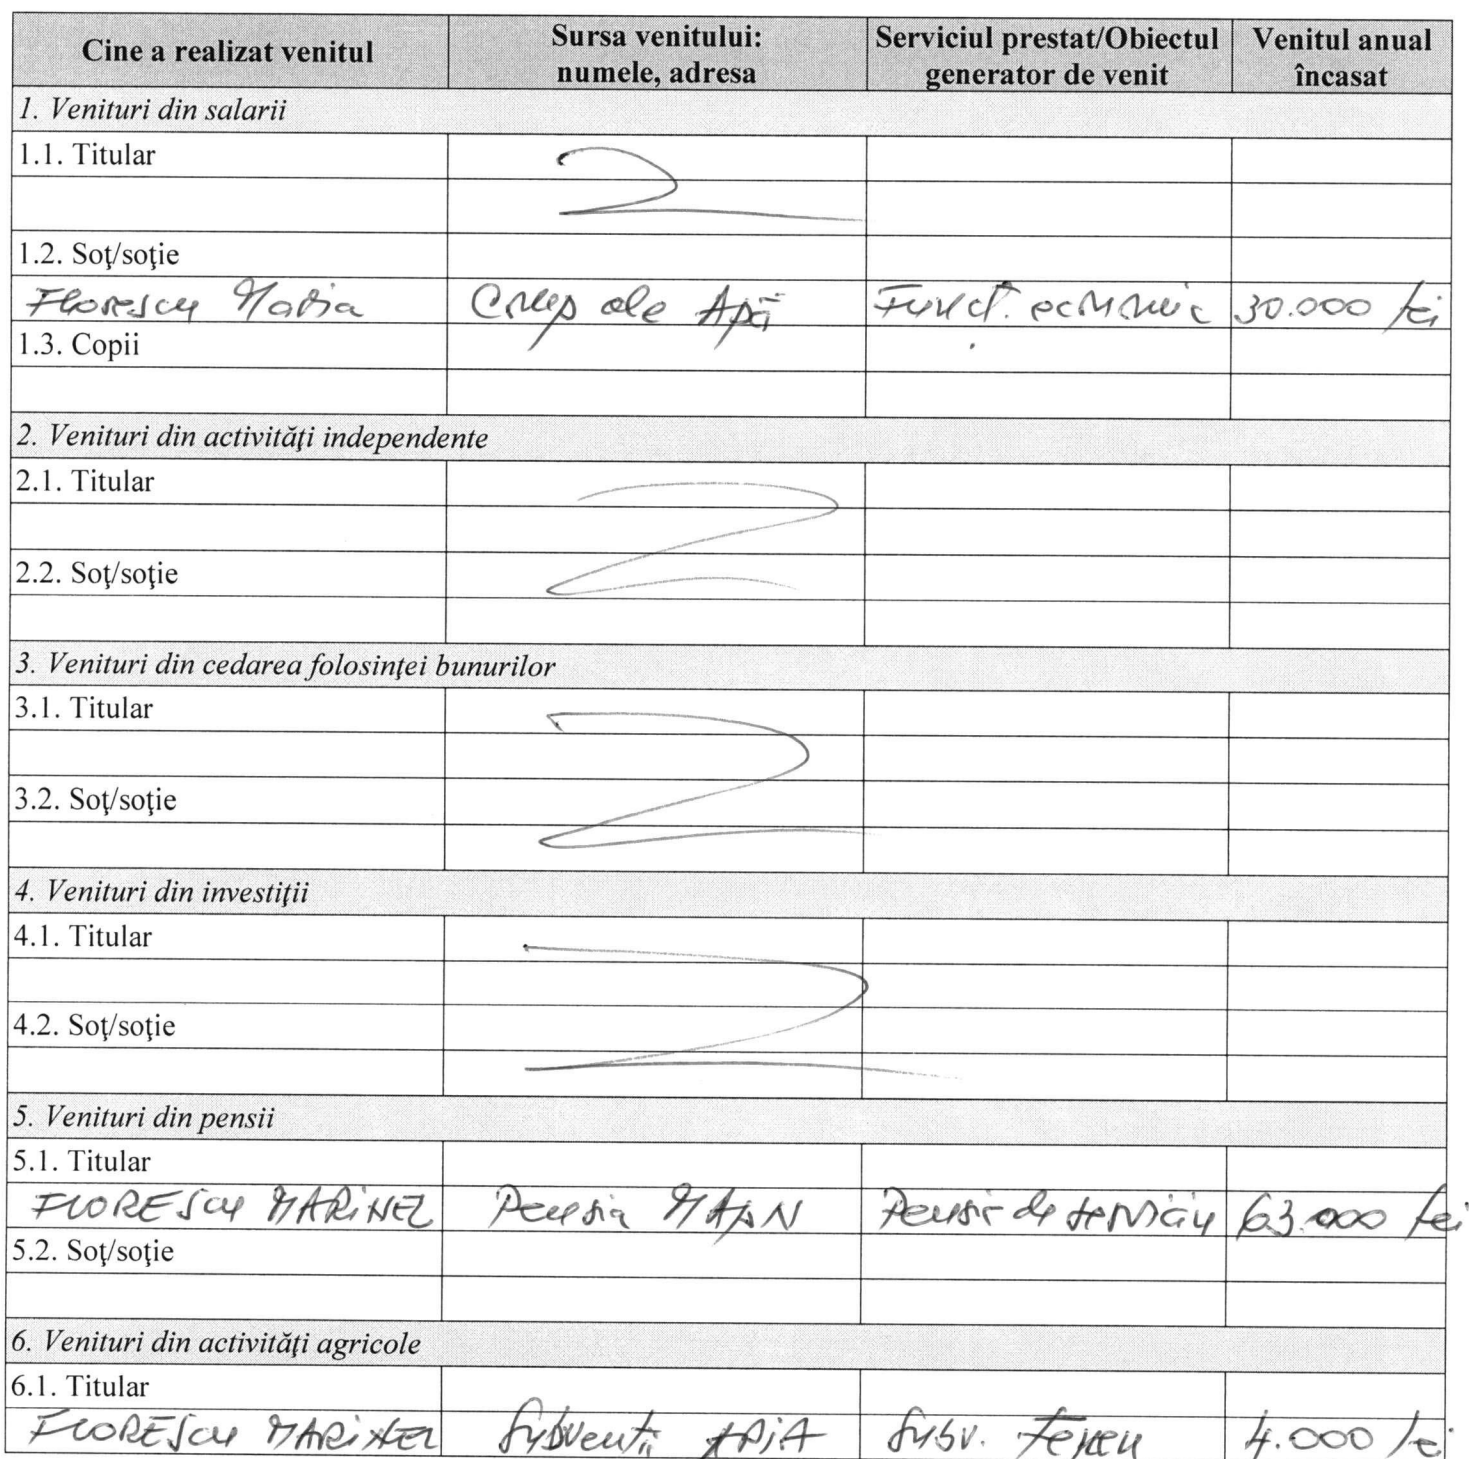 Cine a realizat venitul
Sursa venitului:
numele, adresa
Serviciul prestat/Obiectul
generator de venit
Venitul anual
încasat
1. Venituri din salarii
1.1. Titular
1.2. Soţ/soţie
Florescu Maria de Apă Funcț. economic 30.000 lei
1.3. Copii
2. Venituri din activităţi independente
2.1. Titular
2.2. Soţ/soţie
3. Venituri din cedarea folosinţei bunurilor
3.1. Titular
3.2. Soţ/soţie
4. Venituri din investiţii
4.1. Titular
4.2. Soţ/soţie
5. Venituri din pensii
5.1. Titular
FLORESCU MARINEL Pensia MApN Pensie de serviciu 63.000 lei
5.2. Soţ/soţie
6. Venituri din activităţi agricole
6.1. Titular
FLORESCU MARINEL Subvenți APIA Subv. teren 4.000 lei